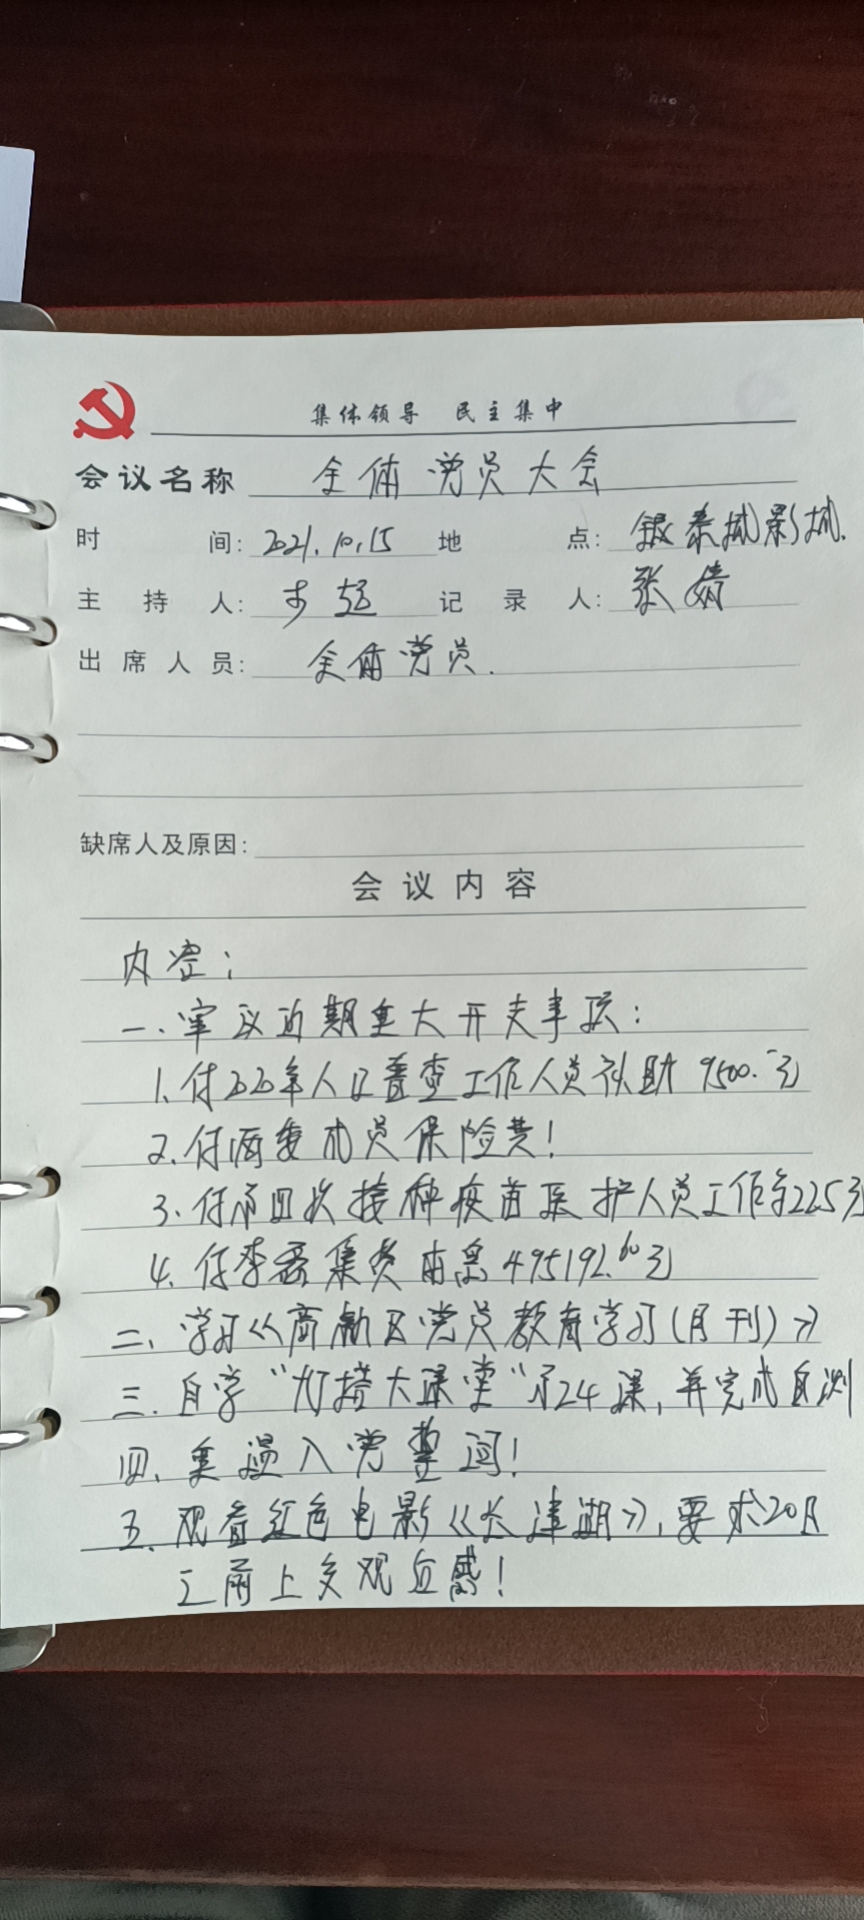 集体领导 民主集中
会议名称 全体党员大会
时间: 2021.10.15 地点: 银泰城影城.
主持人: 记录人: 张婧
出席人员: 全体党员.
缺席人及原因:
会议内容
内容:
一、审议近期重大开支事项:
1.付2020年人口普查工作人员补助 9500.-元
2.付两委成员保险费!
3.付第四次接种疫苗医护人员工作餐225元
4.付李 集资 495192.60元
二、学习《高新区党员教育学习(月刊)》
三.自学“灯塔大课堂”第24课,并完成自测
四、重温入党誓词!
五.观看红色电影《长津湖》,要求20日
之前上交观后感!